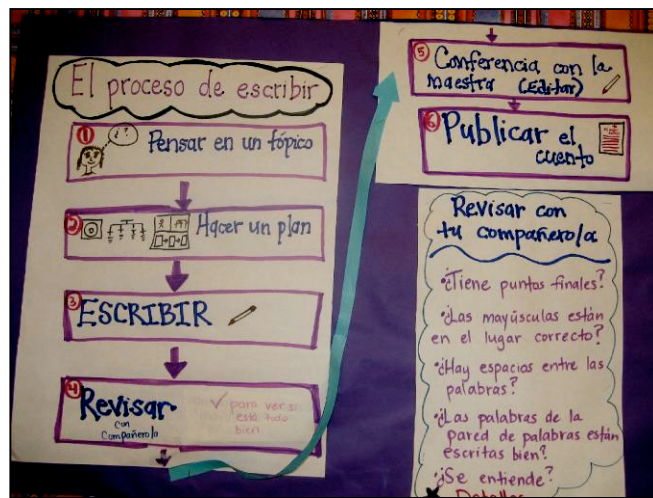 El proceso de escribir
1 Pensar en un tópico
¿?
2 Hacer un plan
3 ESCRIBIR
4 Revisar
con
compañero/a
✓ para ver si
está todo
bien
5 Conferencia con la
maestra (Editar)
6 Publicar el
cuento
Revisar con
tu compañero/a
• ¿Tiene puntos finales?
• ¿Las mayúsculas están
en el lugar correcto?
• ¿Hay espacios entre las
palabras?
• ¿Las palabras de la
pared de palabras están
escritas bien?
• ¿Se entiende?
Detalles